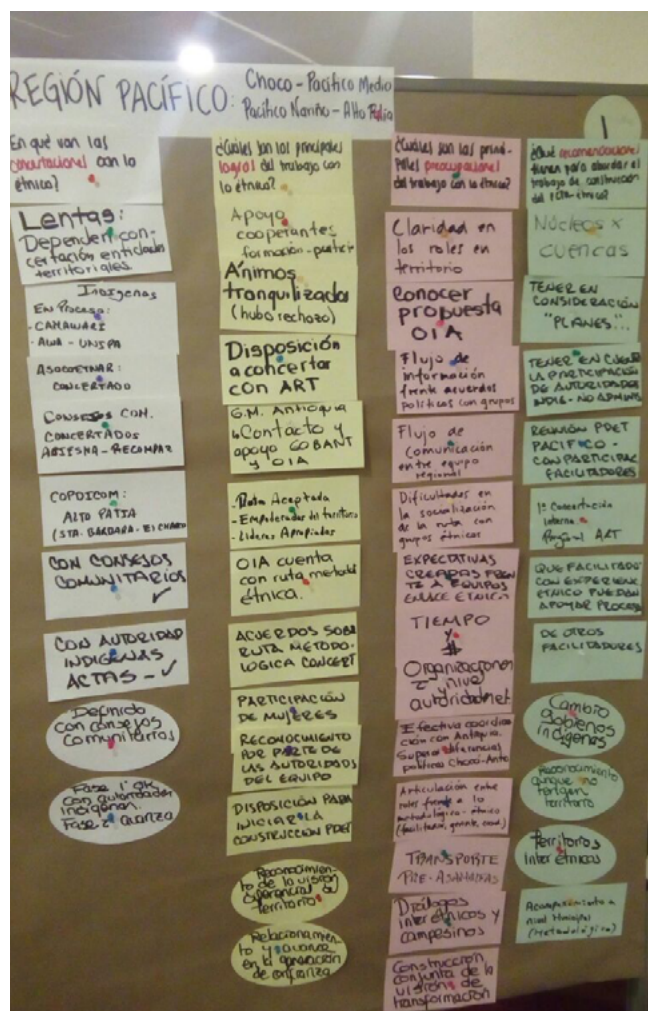 REGIÓN PACÍFICO:
Choco - Pacífico Medio
Pacífico Nariño - Alto Patía
1
En qué van las
concertaciones con lo
étnico?
Lentas:
Dependen con-
certación entidades
territoriales
Indígenas
En Proceso:
- CAMAWARI
- AWA - UNIPA
ASOCOETNAR:
CONCERTADO
CONSEJOS COM.
CONCERTADOS
RECOMPAZ
COPDICOM:
ALTO PATIA
(STA. BARBARA -
CON CONSEJOS
COMUNITARIOS
✓
CON AUTORIDAD
INDIGENAS
ACTAS - ✓
Definido
con consejos
comunitarios
Fase 1 OK
con autoridades
indígenas.
Fase 2 avanza
¿Cuáles son los principales
logros del trabajo con
lo étnico?
Apoyo
cooperantes
formación-particip
Ánimos
tranquilizados
(hubo rechazo)
Disposición
a concertar
con ART
G.M. Antioquia
Contacto y
apoyo GOBANT
y OIA
- Ruta Aceptada
- Empoderados del territorio
- Líderes Apropiados
OIA cuenta
con ruta metodo
étnica.
ACUERDOS SOBR
RUTA METODO-
LOGICA CONCERT
PARTICIPACIÓN
DE MUJERES
RECONOCIMIENTO
POR PARTE DE
LAS AUTORIDADES
DEL EQUIPO
DISPOSICIÓN PARA
INICIAR LA
CONSTRUCCIÓN PDET
Reconocimien-
to de la visión
diferencial del
territorio
Relacionamien-
to y avance
en la generación
de confianza
¿Cuáles son las princi-
pales preocupaciones
del trabajo con lo étnico?
Claridad en
los roles en
territorio
Conocer
propuesta
OIA
Flujo de
información
frente acuerdos
políticos con grupos
Flujo de
comunicación
entre equipo
regional
Dificultades en
la socialización
de la ruta con
grupos étnicos
EXPECTATIVAS
CREADAS FREN
TE A EQUIPOS
ENLACE ETNICO
TIEMPO
Y
#
Organizaciones
nivel
autoridades
Efectiva coordina
ción con Antioquia.
Superar diferencias
políticas Chocó-Antio
Articulación entre
roles frente a lo
metodológico-étnico
(facilitador, gerente, coord.)
TRANSPORTE
PRE-ASAMBLEAS
Diálogos
interétnicos y
campesinos
Construcción
conjunta de la
visión de
transformación
¿Qué recomendaciones
tienen para abordar el
trabajo de construcción
del étnico?
Núcleos x
cuencas
TENER EN
CONSIDERACIÓN
"PLANES"...
TENER EN CUENTA
LA PARTICIPACIÓN
DE AUTORIDADES
INDIG. - NO ADMINIS
REUNIÓN PDET
PACIFICO -
CON PARTICIPAC
FACILITADORES
1ª Concertación
interna
Regional ART
QUE FACILITADO
CON EXPERIENC
ETNICO PUEDAN
APOYAR PROCESO
DE OTROS
FACILITADORES
Cambio
gobiernos
indígenas
Reconocimiento
aunque no
tengan
territorio
Territorios
Interétnicos
Acompañamiento a
nivel
(Metodológico)